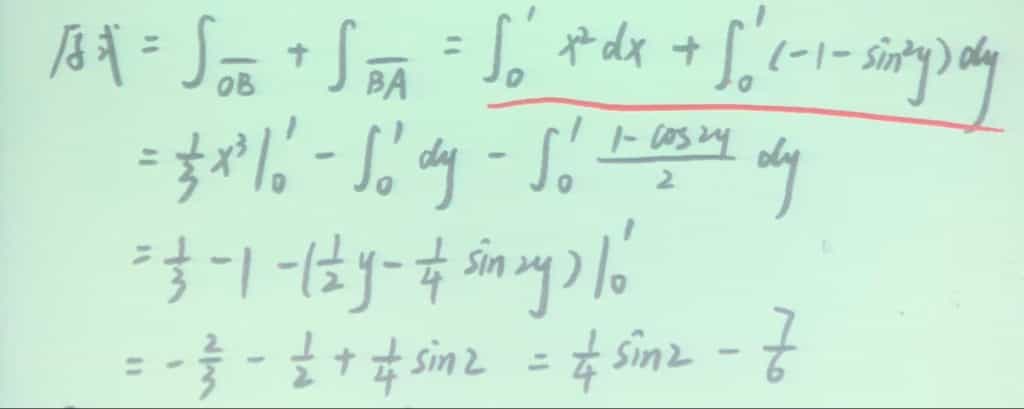 原式 = ∫_{\overline{OB}} + ∫_{\overline{BA}} = ∫₀¹ x² dx + ∫₀¹ (-1 - sin²y) dy
= 1/3 x³ |₀¹ - ∫₀¹ dy - ∫₀¹ (1 - cos2y)/2 dy
= 1/3 - 1 - (1/2 y - 1/4 sin2y) |₀¹
= - 2/3 - 1/2 + 1/4 sin2 = 1/4 sin2 - 7/6